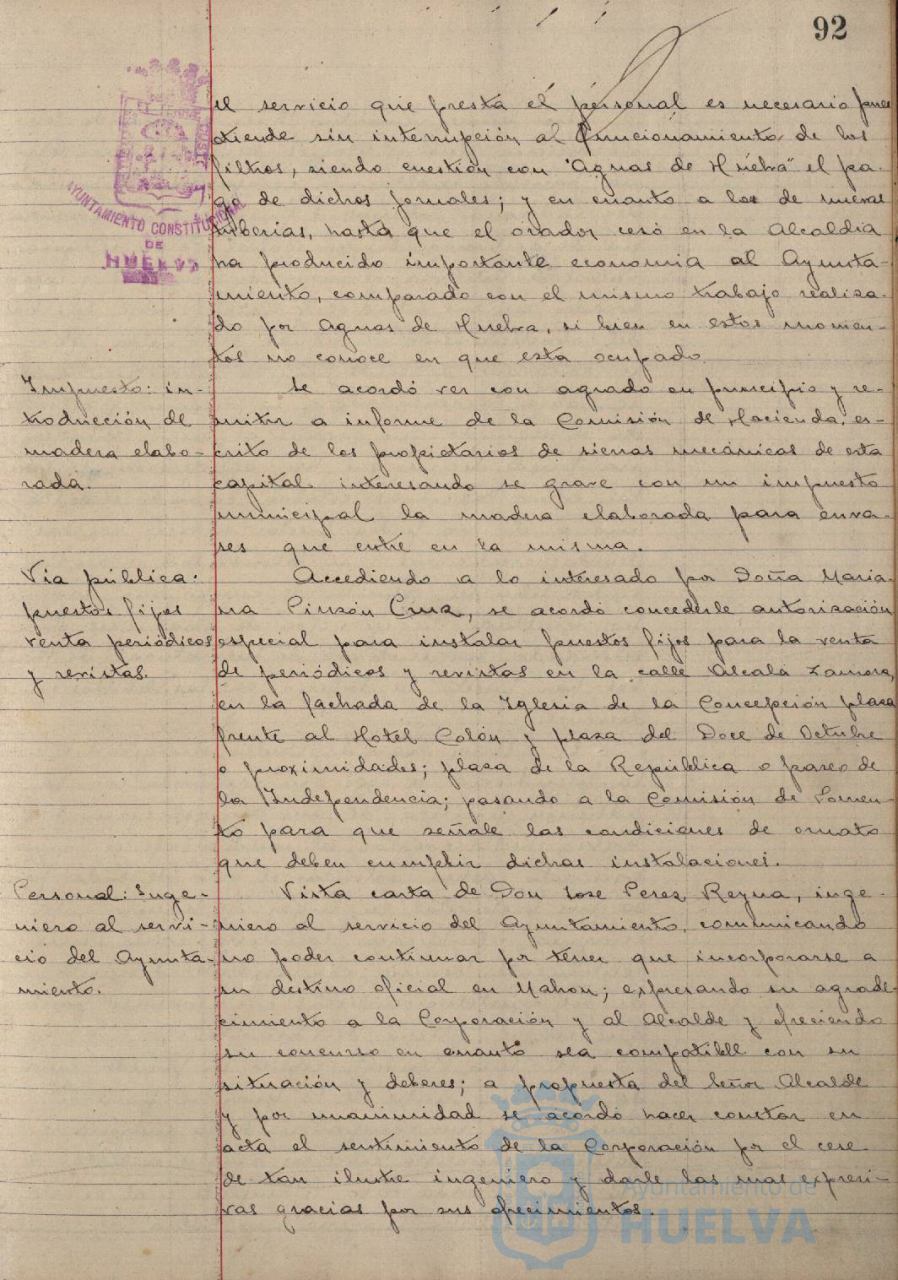 92
AYUNTAMIENTO CONSTITUCIONAL
DE
HUELVA
el servicio que presta el personal es necesario pues
atiende sin interrupción al funcionamiento de los
filtros, siendo cuestión con "Aguas de Huelva" el pa-
go de dichos jornales; y en cuanto a los de nuevas
tuberias, hasta que el orador cesó en la Alcaldia
ha producido importante economia al Ayunta-
miento, comparado con el mismo trabajo realiza-
do por Aguas de Huelva, si bien en estos momen-
tos no conoce en que esta ocupado.
Impuesto: in-
troducción de
madera elabo-
rada.
Se acordó ver con agrado en principio y re-
mitir a informe de la Comisión de Hacienda, es-
crito de los propietarios de sierras mecánicas de esta
capital interesando se grave con un impuesto
municipal la madera elaborada para enva-
ses que entre en la misma.
Via pública:
puestos fijos
venta periódicos
y revistas.
Accediendo a lo interesado por Doña Maria-
na Pinzón Cruz, se acordó concederle autorización
especial para instalar puestos fijos para la venta
de periódicos y revistas en la calle Alcalá Zamora,
en la fachada de la Iglesia de la Concepción plaza
frente al Hotel Colón y plaza del Doce de Octubre
o proximidades; plaza de la República o paseo de
la Independencia; pasando a la Comisión de Fomen-
to para que señale las condiciones de ornato
que deben cumplir dichas instalaciones.
Personal: Inge-
niero al servi-
cio del Ayunta-
miento.
Vista carta de Don Jose Perez Reyna, inge-
niero al servicio del Ayuntamiento, comunicando
no poder continuar por tener que incorporarse a
su destino oficial en Mahon; expresando su agrade-
cimiento a la Corporación y al Alcalde y ofreciendo
su concurso en cuanto sea compatible con su
situación y deberes; a propuesta del Señor Alcalde
y por unanimidad se acordó hacer constar en
acta el sentimiento de la Corporación por el cese
de tan ilustre ingeniero y darle las mas expresi-
vas gracias por sus ofrecimientos.
Ayuntamiento de
HUELVA